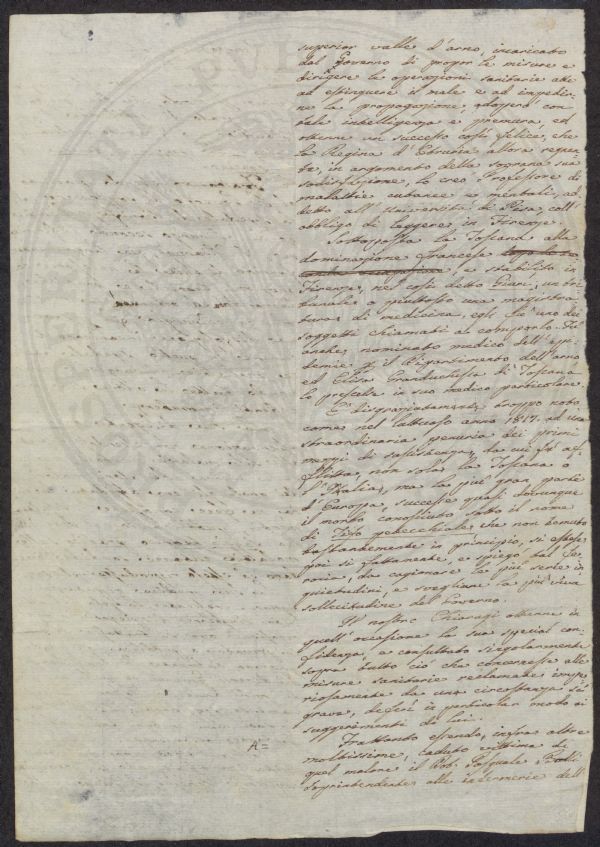 superior valle d'arno, incaricato
dal Governo di propor le misure e
dirigere le operazioni sanitarie atte
ad estinguere il male e ad impedir-
ne la propagazione, adoperò con
tale intelligenza e premura, ed
ottenne un successo così felice, che
la Regina d'Etruria allora reggen-
te, in argomento della sovrana sua
soddisfazione, lo creò Professore di
malattie cutanee e mentali, ad-
detto all'Università di Pisa, coll'
obbligo di leggere in Firenze.
Sottoposta la Toscana alla
dominazione francese
e stabilito in
Firenze, nel così detto Giurì, un tri-
bunale o piuttosto una magistra-
tura di medicina, egli fu uno dei
soggetti chiamati a comporlo. Fu
anche nominato medico dell'epi-
demie il Dipartimento dell'arno
ed Elisa Granduchessa di Toscana
lo prescelse in suo medico particolare.
È disgraziatamente troppo noto
come nel tutt'corso anno 1817. ad una
straordinaria penuria dei primi
mezzi di sussistenza, da cui fu af-
flitta, non sola la Toscana o
l'Italia, ma la più gran parte
d'Europa, successe quasi dovunque
il morbo conosciuto sotto il nome
di Tifo petecchiale, che non temuto
bastantemente in principio, si estese
poi si fattamente, e spiegò tal fe-
rocia, da cagionare le più serie in-
quietudini, e svegliare la più viva
sollecitudine del Governo.
Il nostro Chiarugi ottenne in
quell'occasione la sua special con-
fidenza, e consultato singolarmente
sopra tutto ciò che concernesse alle
misure sanitarie reclamate impe-
riosamente da una circostanza sì
grave, deferì in particolar modo ai
suggerimenti di lui.
Frattanto essendo, infra altre
moltissime, caduto vittima di
quel malore il Dott. Pasquale
Soprintendente alle infermerie dell'
A=